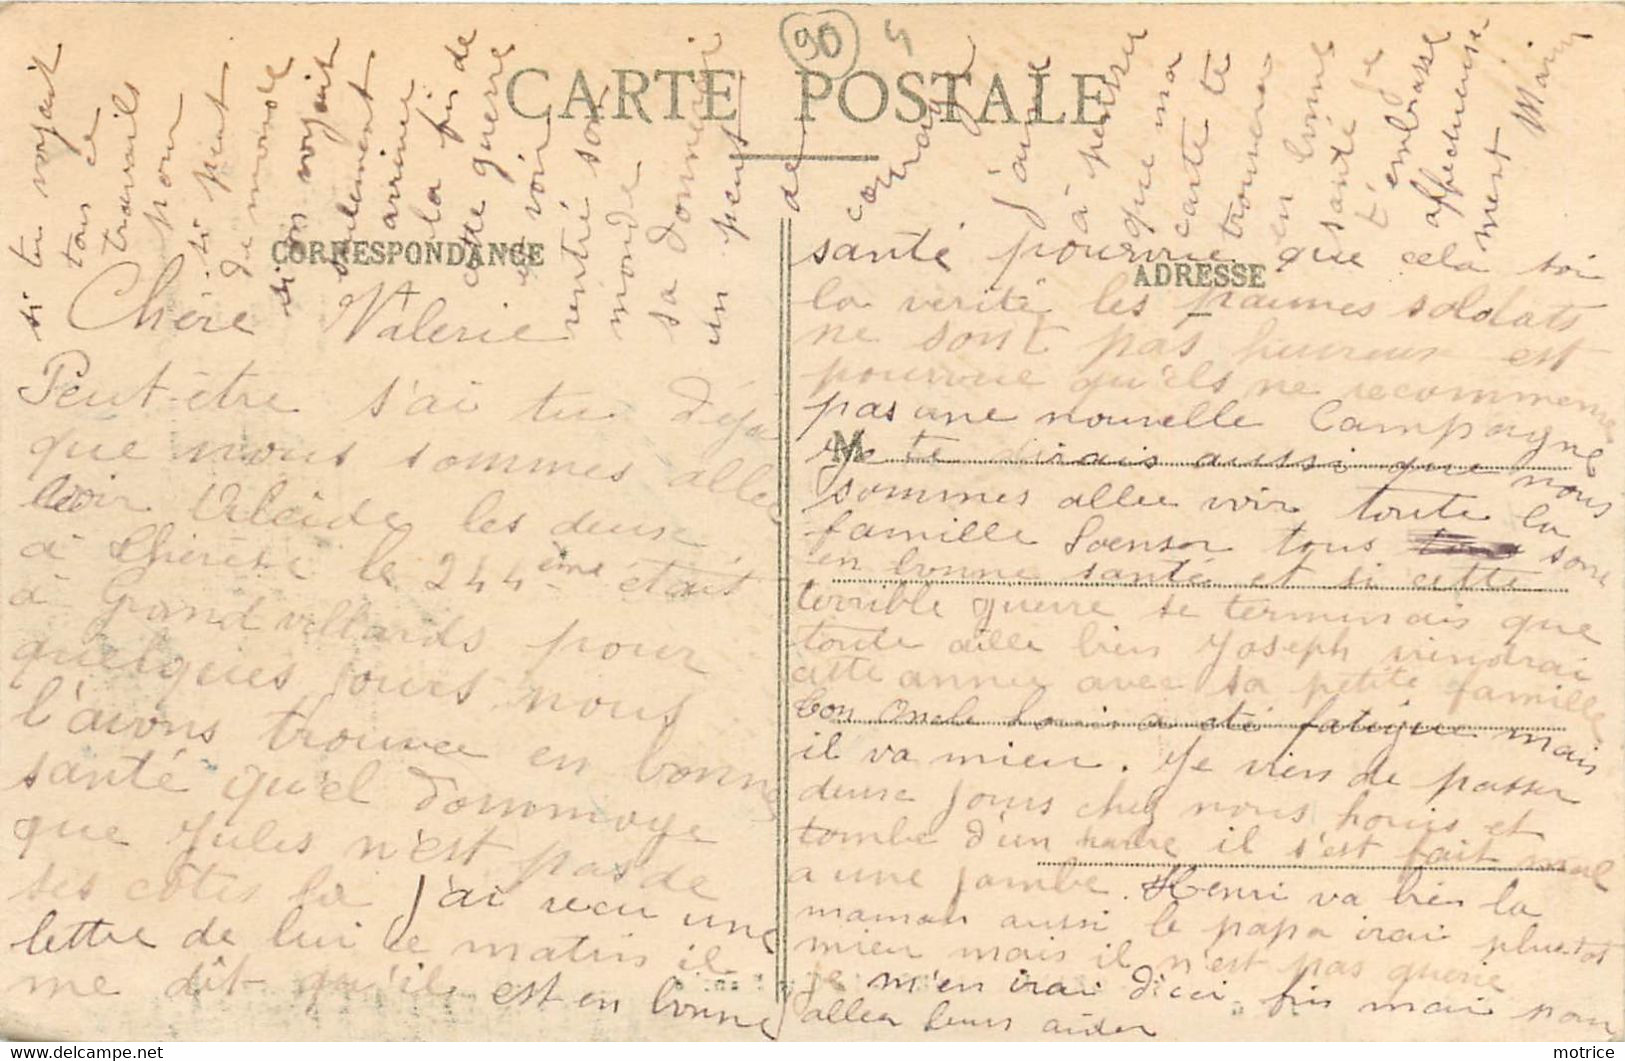 90 4
CARTE POSTALE
CORRESPONDANCE
ADRESSE
M
Chère Valerie
Peut-être s'ai tu déja
que nous sommes allee
voir Alcide les deux
à le 244 ème était
à Grandvillards pour
quelques jours nous
l'avons trouvee en bonne
santé qu'el dommage
que Jules n'est pas de
ses côtes la j'ai recu une
lettre de lui ce matin il
me dit qu'il est en bonne
santé pourvue que cela soi
la verité les pauvres soldats
ne sont pas heureux est
pourvue qu'els ne recommence
pas une nouvelle Campagne
Je te dirais aussi que nous
sommes allee voir toute la
famille tous sont
en bonne santé et si cette
terrible guerre se terminais que
toute aille bien Joseph viendrai
cette annee avec sa petite famille
ton Oncle Louis a été fatigue mais
il va mieu. Je viens de passer
deux jours chez nous Louis et
tombe d'un il s'est fait mal
a une jambe. Henri va bien la
maman aussi le papa irai plutot
mieu mais il n'est pas guerie
je m'en irai d'ici fin mai pour
allee leurs aider
si tu voyait
tous ce
travails
pour
si peut
de monde
si on voyait
seulement
arriver
la fin de
cette guerre
et voir
rentré son
monde
sa donnerai
un peut
de
courage
j'aime
à penser
que ma
carte te
trouvera
en bonne
santé
Je
t'embrasse
affectueuse
ment Marie
motrice